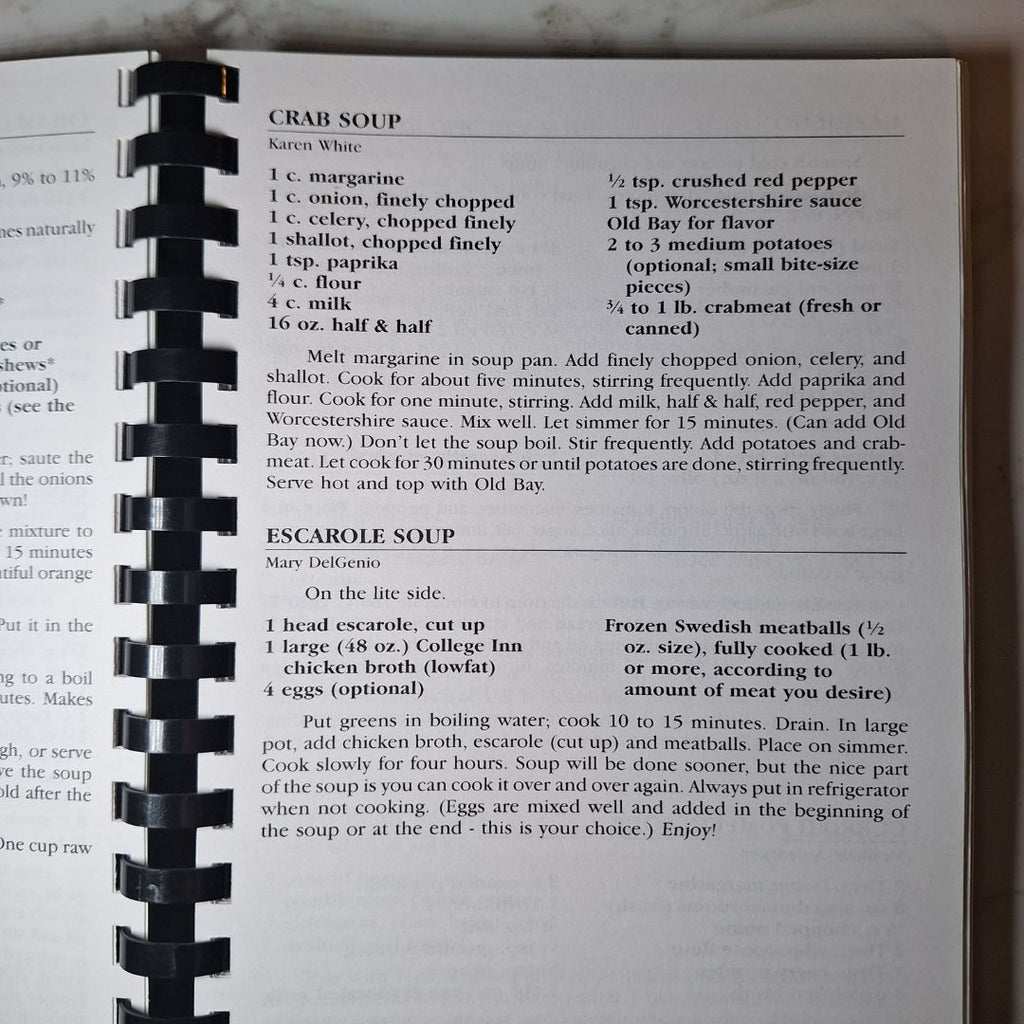 , 9% to 11%
naturally
*
es or
shews*
tional)
(see the
r; saute the
l the onions
wn!
mixture to
15 minutes
tiful orange
Put it in the
ng to a boil
utes. Makes
gh, or serve
ve the soup
old after the
One cup raw
CRAB SOUP
Karen White
1 c. margarine
1 c. onion, finely chopped
1 c. celery, chopped finely
1 shallot, chopped finely
1 tsp. paprika
¼ c. flour
4 c. milk
16 oz. half & half
½ tsp. crushed red pepper
1 tsp. Worcestershire sauce
Old Bay for flavor
2 to 3 medium potatoes
(optional; small bite-size
pieces)
¾ to 1 lb. crabmeat (fresh or
canned)
Melt margarine in soup pan. Add finely chopped onion, celery, and
shallot. Cook for about five minutes, stirring frequently. Add paprika and
flour. Cook for one minute, stirring. Add milk, half & half, red pepper, and
Worcestershire sauce. Mix well. Let simmer for 15 minutes. (Can add Old
Bay now.) Don't let the soup boil. Stir frequently. Add potatoes and crab-
meat. Let cook for 30 minutes or until potatoes are done, stirring frequently.
Serve hot and top with Old Bay.
ESCAROLE SOUP
Mary DelGenio
On the lite side.
1 head escarole, cut up
1 large (48 oz.) College Inn
chicken broth (lowfat)
4 eggs (optional)
Frozen Swedish meatballs (½
oz. size), fully cooked (1 lb.
or more, according to
amount of meat you desire)
Put greens in boiling water; cook 10 to 15 minutes. Drain. In large
pot, add chicken broth, escarole (cut up) and meatballs. Place on simmer.
Cook slowly for four hours. Soup will be done sooner, but the nice part
of the soup is you can cook it over and over again. Always put in refrigerator
when not cooking. (Eggs are mixed well and added in the beginning of
the soup or at the end - this is your choice.) Enjoy!